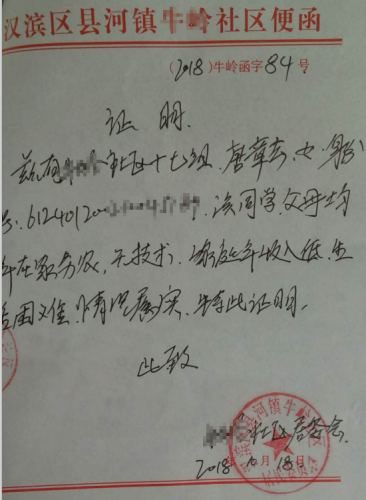 汉滨区县河镇牛岭社区便函
(2018)牛岭函字84号
证 明
兹有 社区十七组,唐 女,身份
号:6124012 ,该同学父母均
年在家务农,无技术,家庭年收入低,生
活困难,情况属实,特此证明。
此致
社区居委会
2018.10月18日